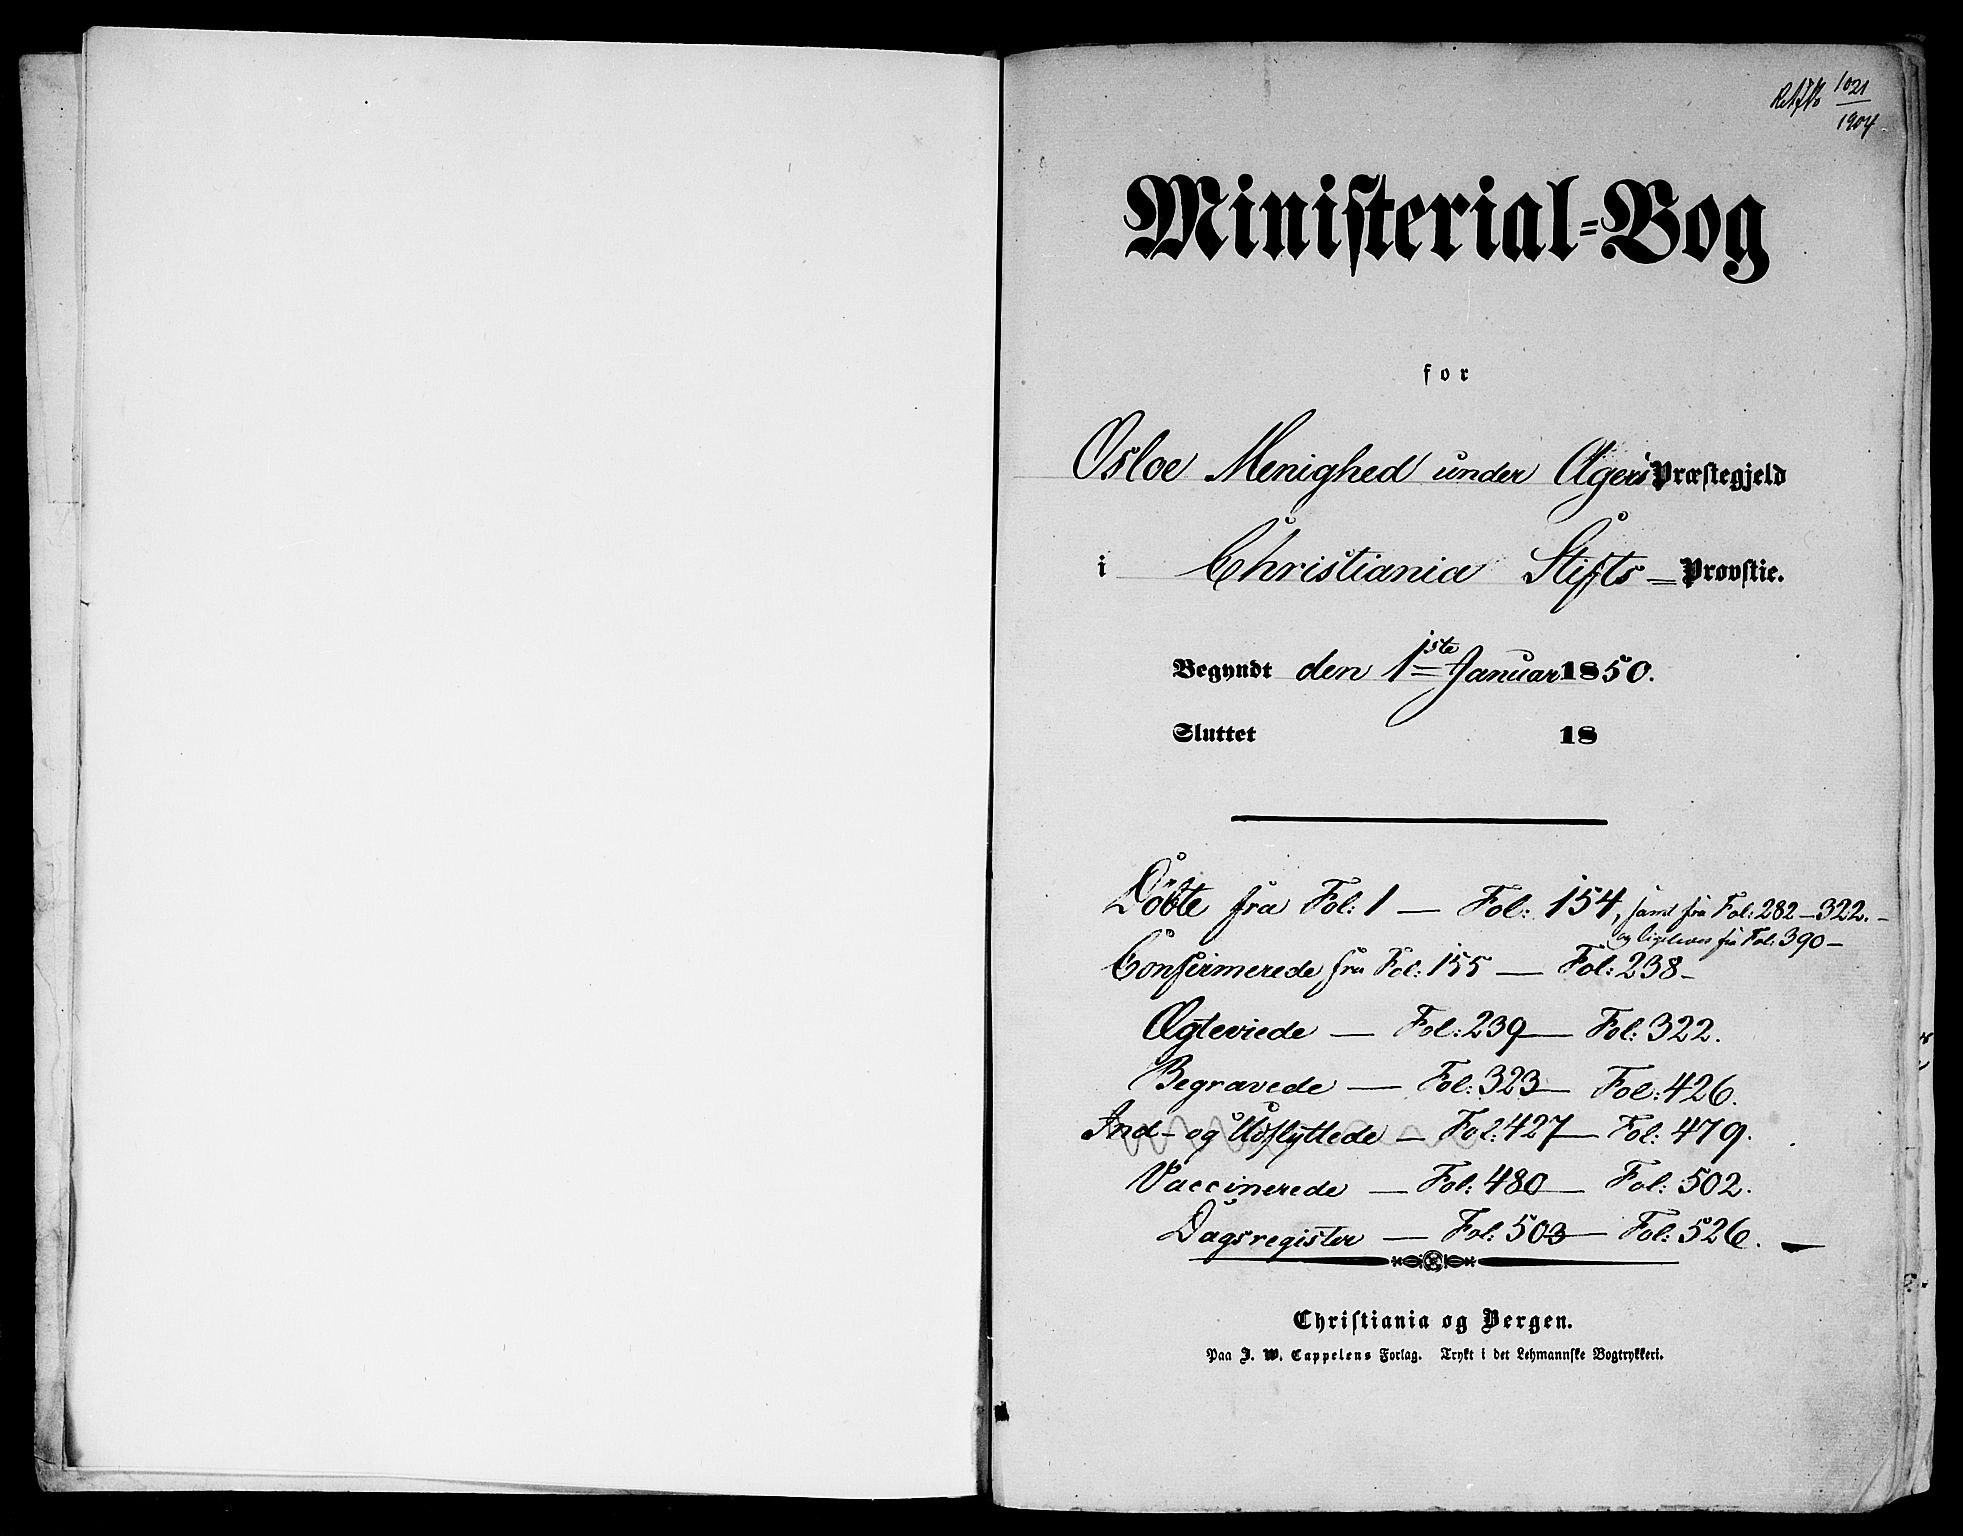 1021
1904
Ministerial-Bog
for
Osloe Menighed under Agers Præstegjeld
i Christiania Stifts - Provstie.
Begyndt den 1ste Januar 1850.
Sluttet 18
Döbte fra Fol: 1 — Fol: 154, samt fra Fol: 282 — 322. -
og ligeledes fra Fol: 390 —
Confirmerede fra Fol: 155 — Fol: 238 -
Ægteviede — Fol: 239 — Fol: 322.
Begravede — Fol: 323 — Fol: 426.
Ind- og Udflyttede — Fol: 427 — Fol: 479.
Vaccinerede — Fol: 480 — Fol: 502.
Dagsregister — Fol: 503 — Fol: 526. —
Christiania og Bergen.
Paa J. W. Cappelens Forlag. Trykt i det Lehmannske Bogtrykkeri.